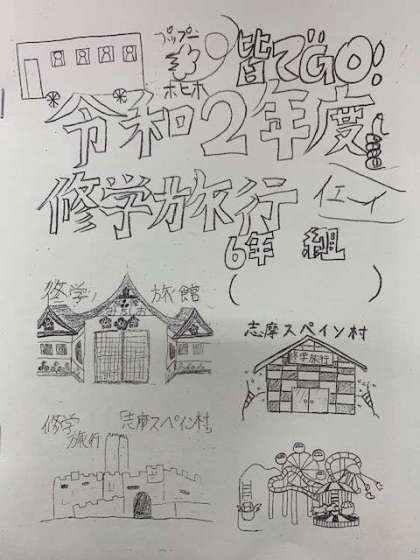 プップー
ポヒポ
皆でGO!
令和2年度
修学旅行
イエーイ
6年 組
(　　　)
修学旅館
志摩スペイン村
修学旅行
修学旅行
「志摩スペイン村」